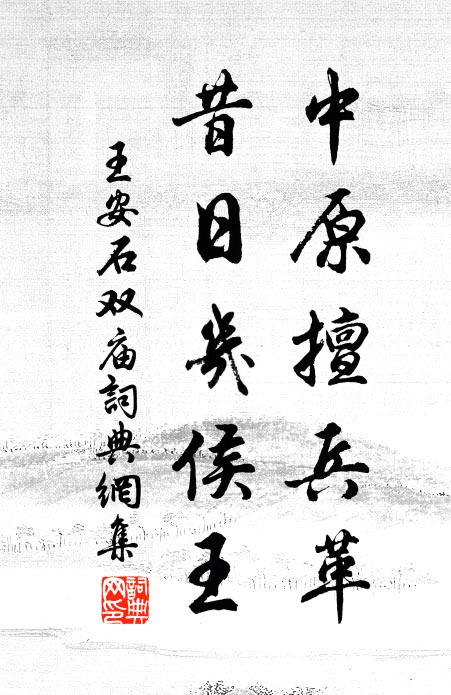 中原擅兵革
昔日幾侯王
王安石双庙詞典網集
詞典网印